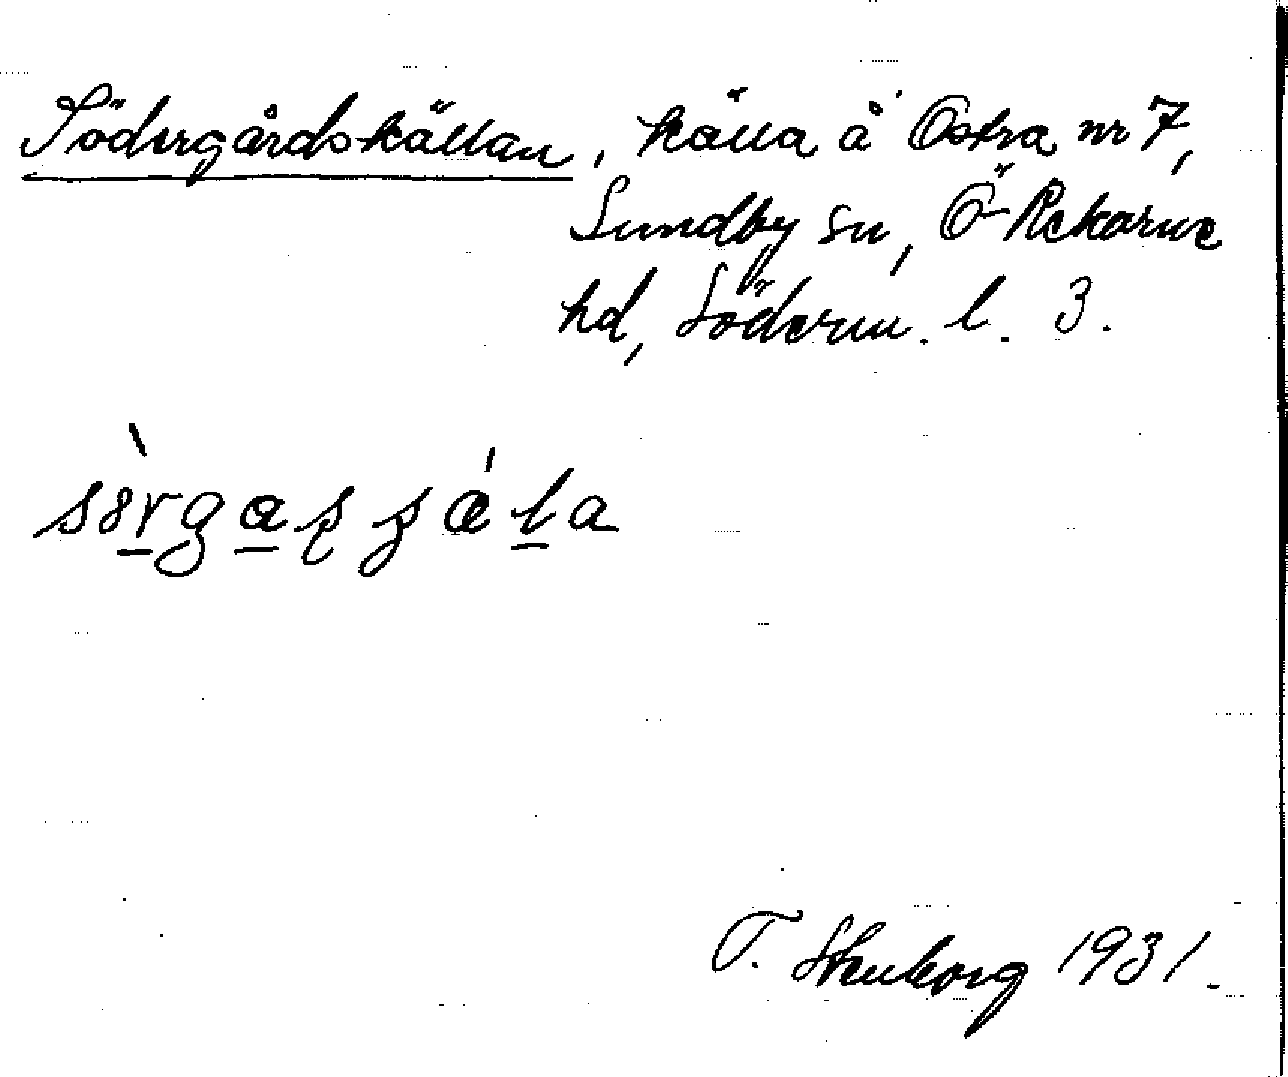 Södergårdskällan, källa å Östra nr 7,
Sundby sn, Ö-Rekarne
hd, Söderm. l. 3.
T. Stenborg 1931.